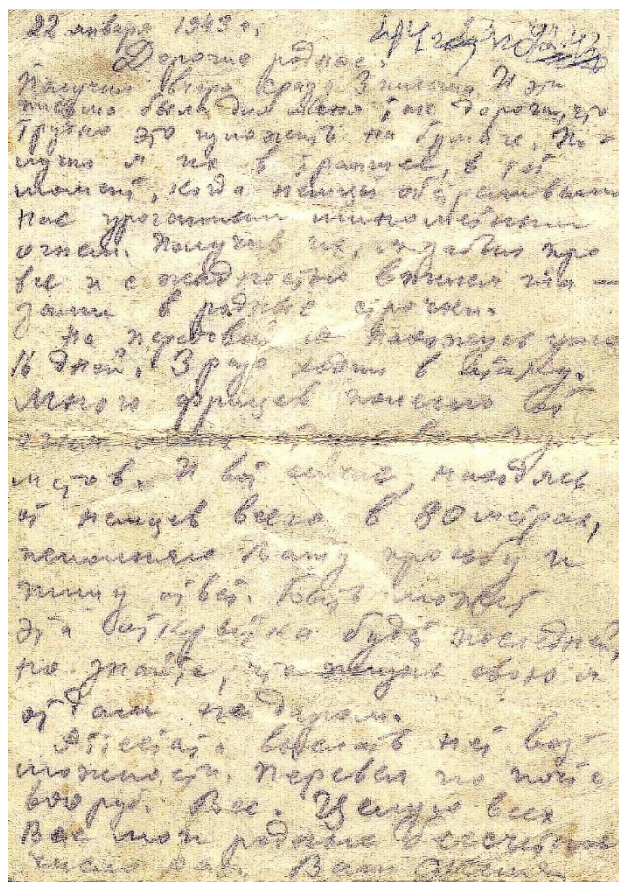 22 января 1943 г.
Дорогие родные.
Получил вчера сразу 3 письма. И эти
письма были для меня так дороги, что
трудно это изложить на бумаге. По-
лучил я их в траншее, в тот
момент, когда немцы обстреливали
нас ураганным минометным
огнем. Получив их, я забыл про
все и с жадностью впился гла-
зами в родные строчки.
На передовой я нахожусь уже
16 дней. 3 раза ходил в атаку.
Много фрицев полегло от
огня
И вот сейчас, находясь
от немцев всего в 80 метрах,
исполняю Вашу просьбу и
пишу ответ. Быть может
эта открытка будет последней,
но знайте, что жизнь свою я
отдам не даром.
Аттестат выслать нет воз-
можности. Перевел по почте
600 руб. Все. Целую всех
Вас мои родные бессчетное
число раз. Ваш